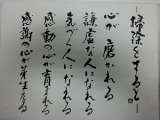 掃除をすると―
心が磨かれる
謙虚な人になれる
気づく人になれる
感動の心が育まれる
感謝の心が芽生える